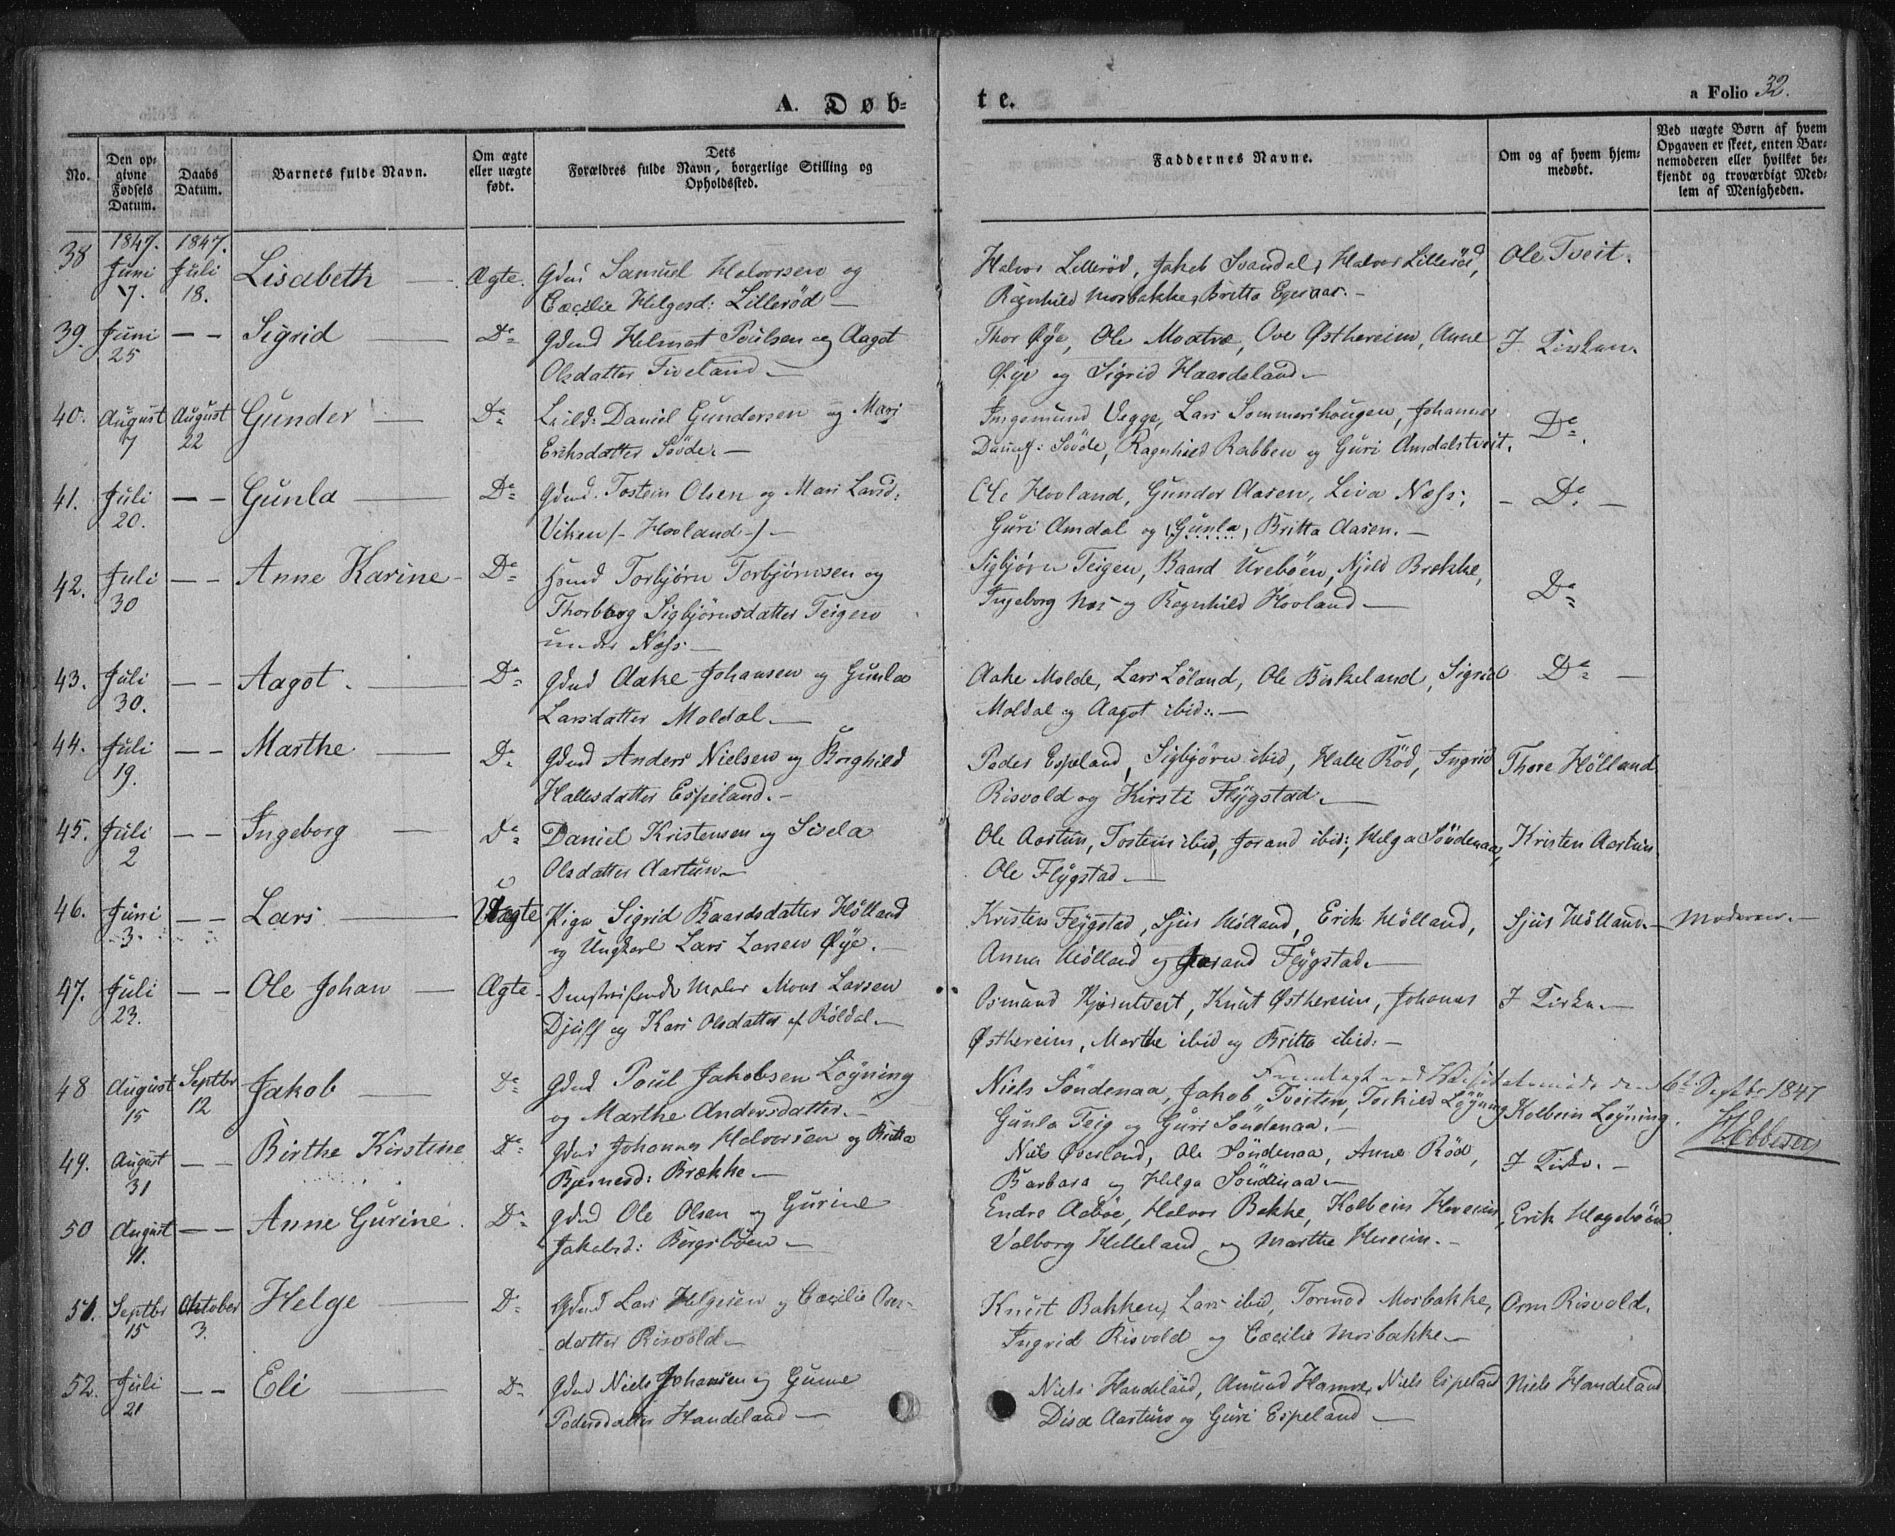 A. Døb-
te.
a Folio 32.
No.
Den op-
givne
Fødsels
Datum.
Daabs
Datum.
Barnets fulde Navn.
Om ægte
eller uægte
født.
Dets
Forældres fulde Navn, borgerlige Stilling og
Opholdssted.
Faddernes Navne.
Om og af hvem hjem-
medøbt.
Ved uægte Børn af hvem
Opgaven er skeet, enten Bar-
nemoderen eller hvilket be-
kjendt og troværdigt Med-
lem af Menigheden.
38 1847. Juni 7. 1847. Juli 18. Lisabeth — Ægte. Gdm Samuel Halvorsen og
Cæcilie Helgesd: Lillerød —
Halvor Lillerød, Jakob Svandal, Halvor Lillerød,
Ragnhild Mosbakke, Britta —
Ole Tveit.
39. Juni 25 — — Sigrid — Do Gdmd Helmert Poulsen og Aagot
Olsdatter Fiveland —
Thor Øye, Ole Moatvæ, Ove Østhereim, Anne
Øye og Sigrid Haardeland —
I Kirken.
40. August 7 August 22 Gunder — Do Daniel Gundersen og Mari
Eriksdatter Søvde. —
Ingemund Vegge, Lars Sommershougen, Johannes
Søvde, Ragnhild Rabben og Guri Amdalstveit.
Do
41. Juli 20. — — Gunla — Do Gdmd. Tostein Olsen og Mari Larsd:
Viken /- Hovland -/ —
Ole Hovland, Gunder Aasen, Liva Næss;
Guri Amdal og Gunla, Britta Aasen. —
— Do —
42. Juli 30 — — Anne Karine — Do Hsmd Torbjørn Torbjørnsen og
Thorborg Sigbjørnsdatter Teigen
under Næss —
Sigbjørn Teigen, Baard Urebøen, Njeld Brekke,
Ingeborg Næs og Ragnhild Hovland —
Do
43. Juli 30. — — Aagot. — Do Gdmd Aake Johansen og Gunla
Larsdatter Moldal. —
Aake Molde, Lars Løland, Ole Birkeland, Sigrid
Moldal og Aagot ibid: —
Do —
44. Juli 19. — — Marthe — Do Gdmd Anders Nielsen og Borghild
Hallesdatter Espeland. —
Peder Espeland, Sigbjørn ibid, Halle Rød, Ingrid
Risvold og Kirsti Flygstad. —
Thore Hølland
45. Juli 2 — — Ingeborg — Do Daniel Kristensen og Sisela
Olsdatter Aartun —
Ole Aartun, Tostein ibid, Jorand ibid:, Helga Søndenaa,
Ole Flygstad —
Kristen Aartun.
46. Juni 3. — — Lars — Uægte Pige Sigrid Baardsdatter Hølland
og Ungkarl Lars Larsen Øye. —
Kristen Flygstad, Sjur Hølland, Erik Hølland,
Anna Hølland og Jorand Flygstad. —
Sjur Hølland. — Moderen. —
47. Juli 23. — — Ole Johan — Ægte — Maler Mons Larsen
Djuff og Kari Olsdatter af Røldal —
Osmund Hjørntveit, Knut Østhereim, Johannes
Østhereim, Marthe ibid og Britta ibid: —
I Kirke. —
Fremlagt ved Visitatsmøde den 6te Septbr 1847
48 August 15 Septbr 12 Jakob — Do Gdmd Poul Jakobsen Løyning
og Marthe Andersdatter. —
Niels Søndenaa, Jakob Tveiten, Torkild Løyning
Gunla Teig og Guri Søndenaa. —
Kolbein Løyning.
49. August 31 — — Birthe Kirstine Do Gdmd Johannes Halvorsen og Britta
Bjørnesd: Brække —
Niels Øverland, Ole Søndenaa, Anne Rød,
Barbara og Helga Søndenaa —
I Kirke. —
50 August 11. — — Anne Gurine. Do Gdmd Ole Olsen og Gurine
Jakobsd: Bergsbøen —
Endre Aabøe, Halvor Bakke, Kolbein Hereim,
Valborg Helleland og Marthe Hereim. —
Erik Hagebøen
51. Septbr 15 Oktober 3. Helge — Do Gdmd Lars Helgesen og Cæcilie Orms-
datter Risvold —
Knut Bakken, Lars ibid, Tormod Mosbakke,
Ingrid Risvold og Cæcilie Mosbakke —
Orm Risvold.
52. Juli 21 — — Eli — Do Gdmd Niels Johansen og Gurine
Pedersdatter Handeland —
Niels Handeland, Amund Hamre, Niels Espeland
Disa Aartun og Guri Espeland —
Niels Handeland